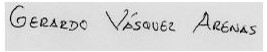 Gerardo Vásquez Arenas